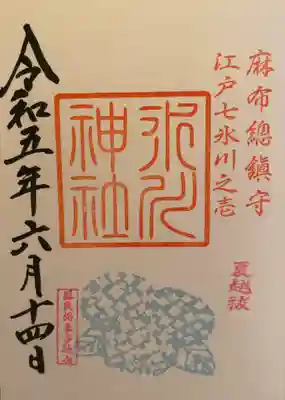 麻布總鎮守
江戸七氷川之壱
夏越祓
氷川
神社
令和五年六月十四日